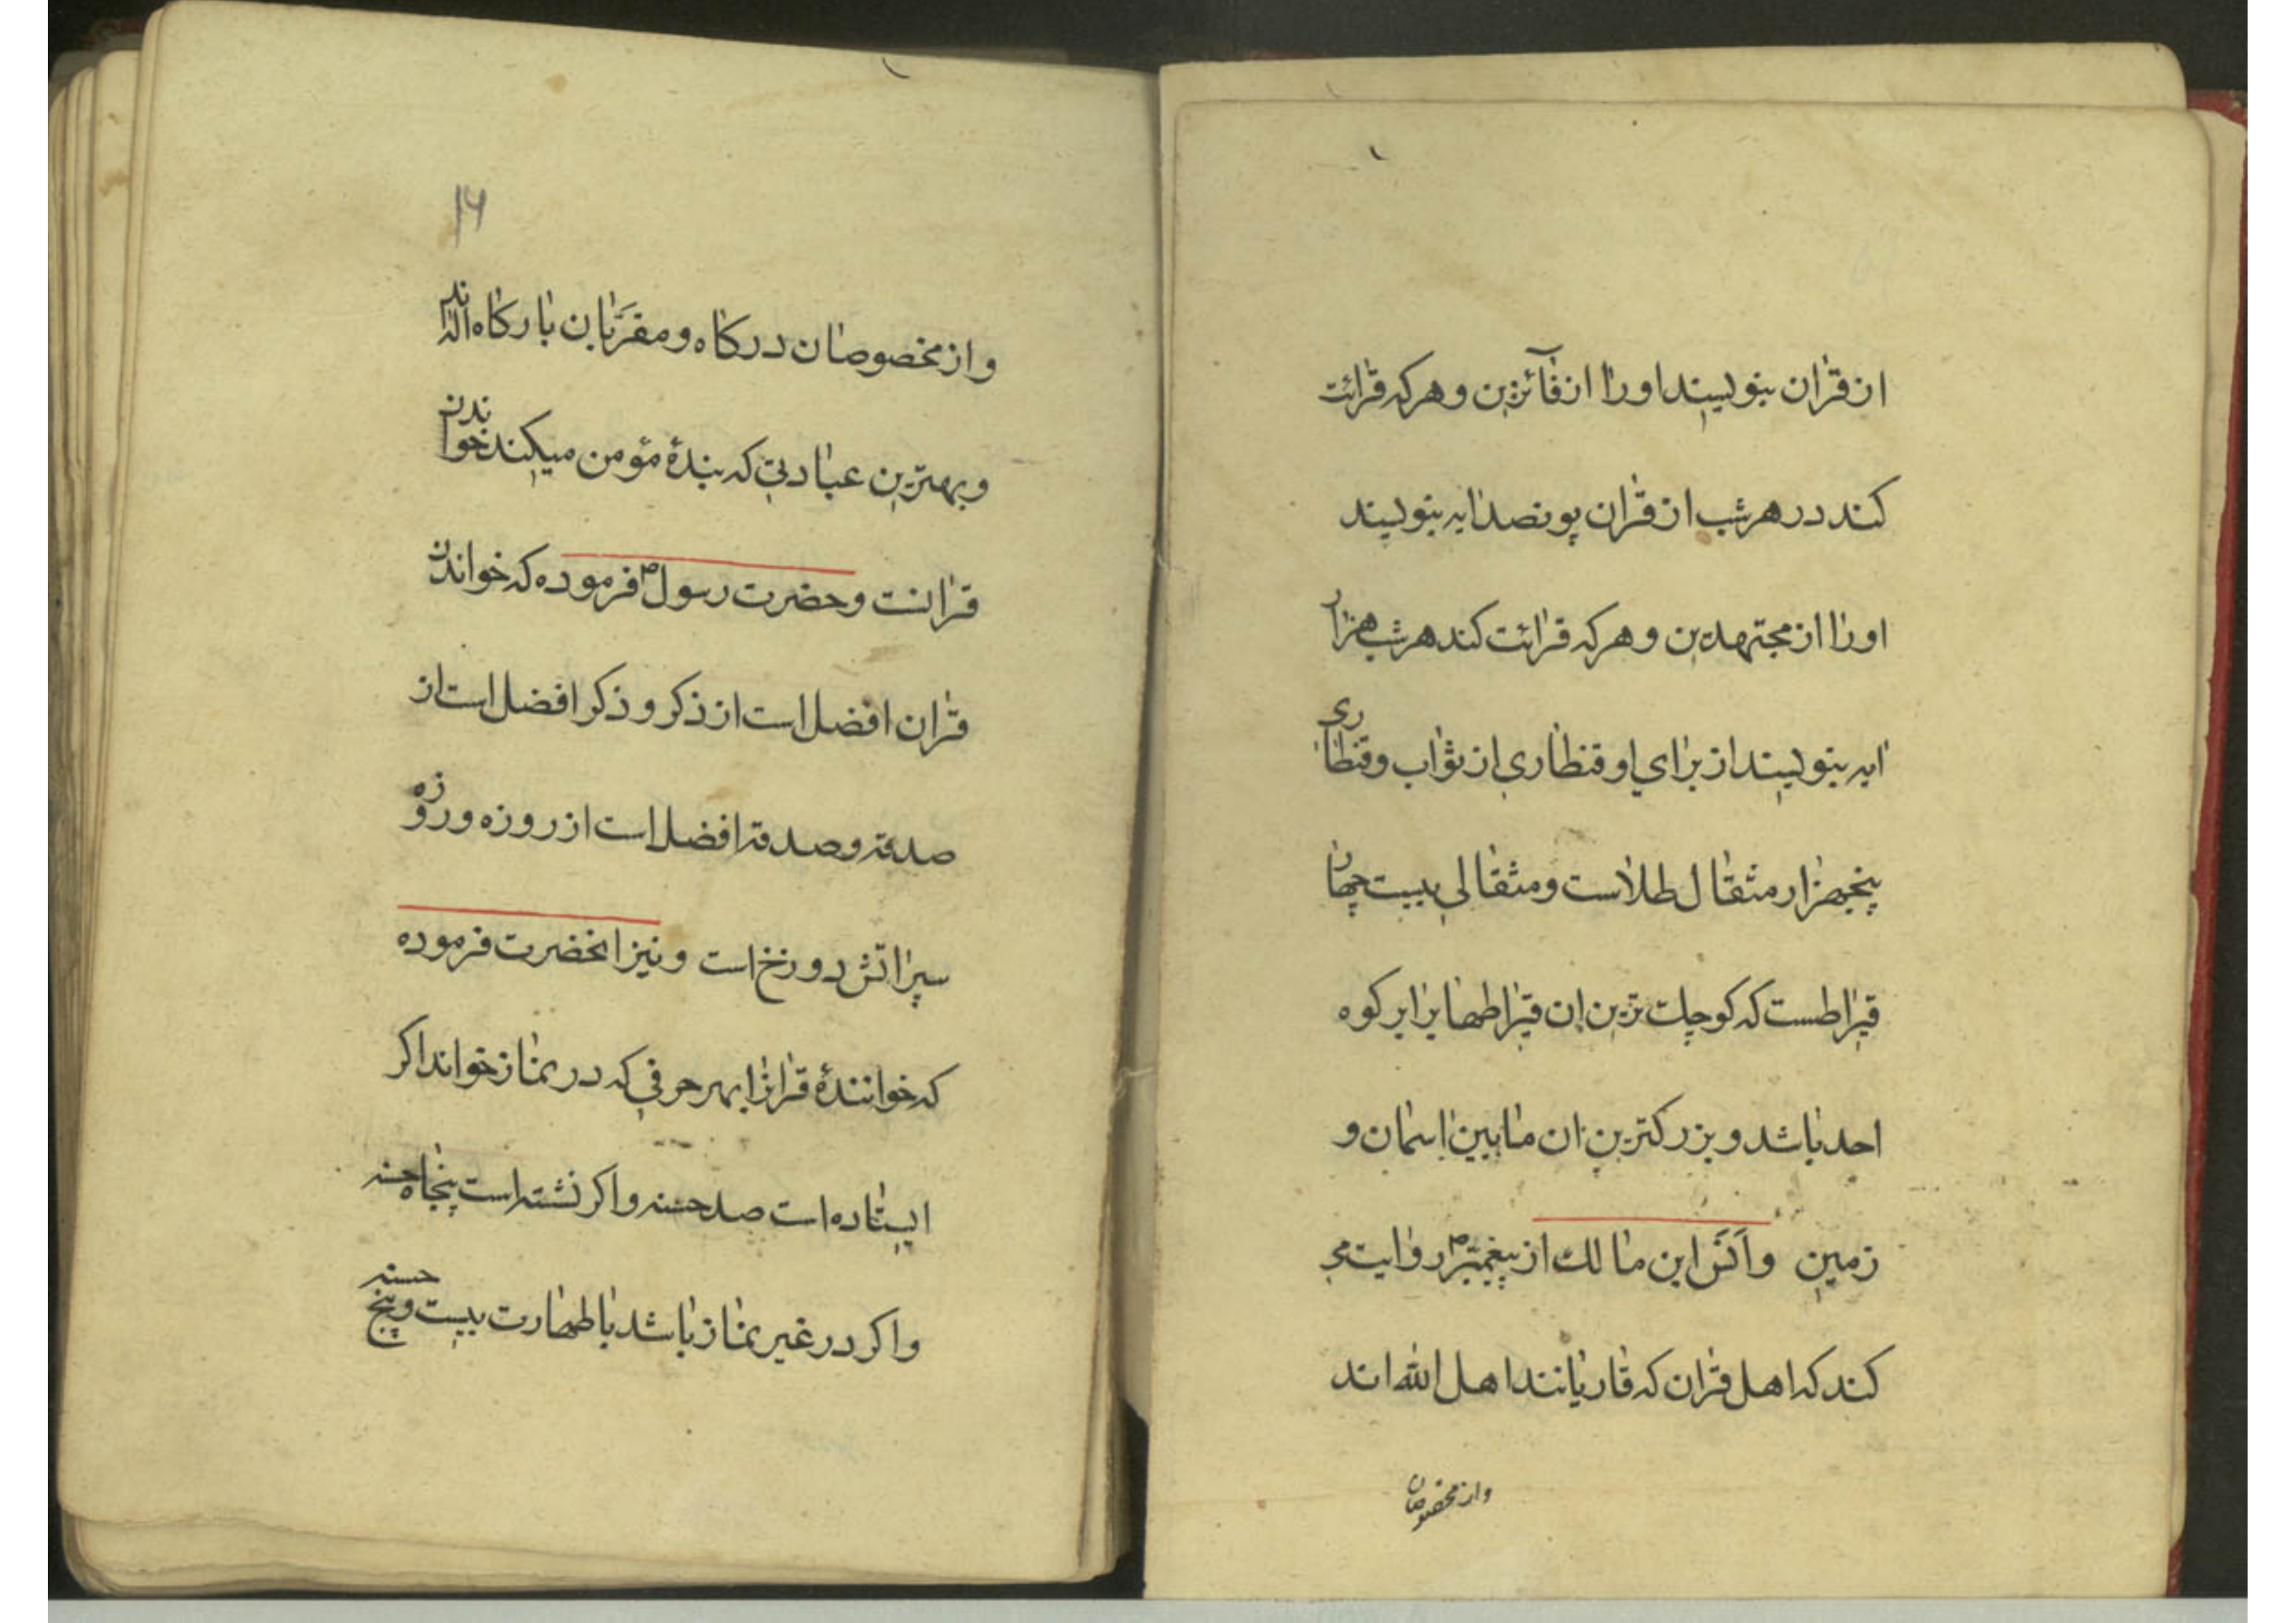 از قرآن بنویسند او را از فآئزین و هر که قرائت
کند در هر شب از قرآن پونصد ایه بنویسند
او را از مجتهدین و هر که قرائت کند هر شب هزار
ایه بنویسند از برای او قنطاری از ثواب و قنطاری
پنجهزار مثقال طلاست و مثقالی بیست چهار
قیراطست که کوچك ترین ان قیراطها برابر کوه
احد باشد و بزرکترین ان مابین اسمان و
زمین و اَنَس ابن مالك از پیغمبر ص روایت مے
کند که اهل قرآن که قاریانند اهل الله اند
و از مخصوصان
۱۶
و از مخصوصان درکاه و مقرَّبان بارکاه الهٰ اند
و بهترین عبادتی که بندهٔ مؤمن میکند خواندن
قرانست و حضرت رسول ص فرموده که خواندن
قرآن افضل است از ذکر و ذکر افضل است از
صدقه و صدقه افضل است از روزه و روزه
سپر اتش دوزخ است و نیز انحضرت فرموده
که خوانندهٔ قرانرا بهر حرفی که در نماز خواند اکر
ایستاده است صد حسنه و اکر نشسته است پنجاه حسنه
و اکر در غیر نماز باشد با طهارت بیست و پنج حسنه